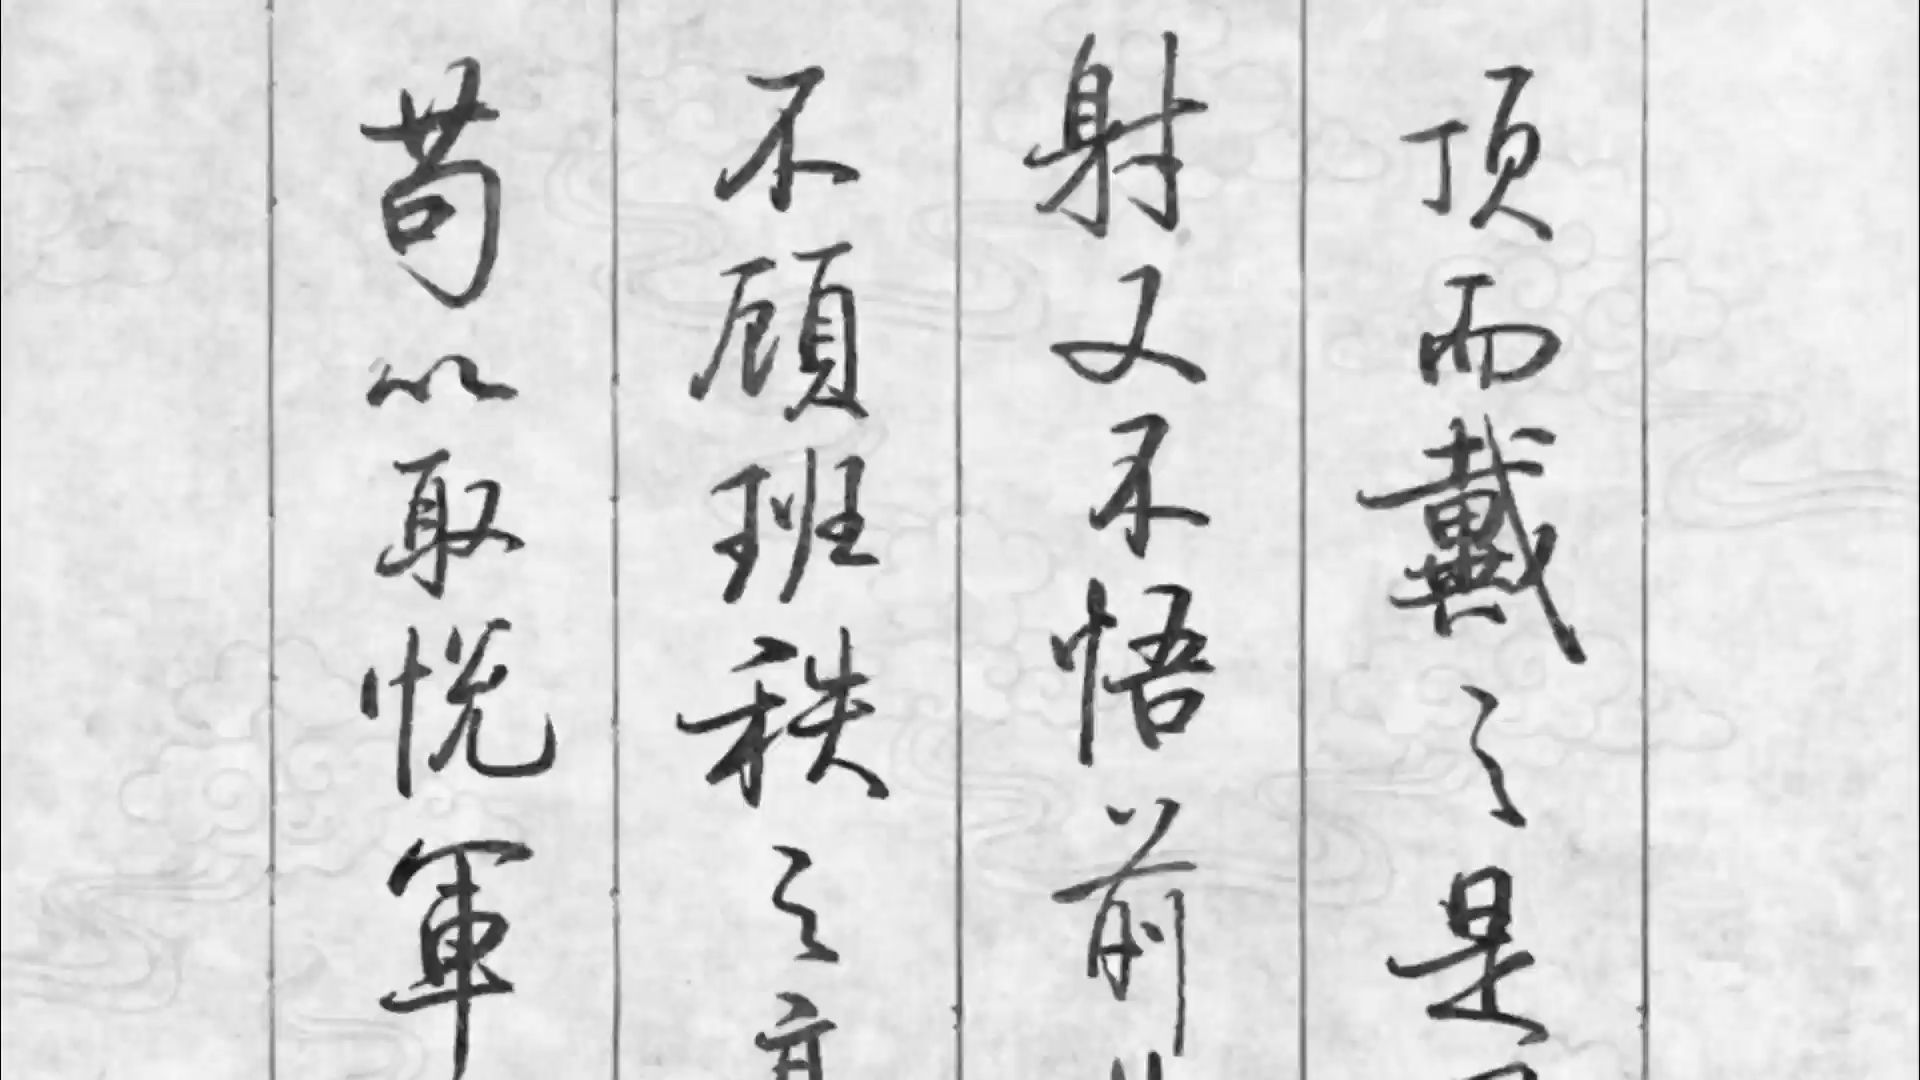 顶而戴之是
射又不悟前
不顾班秩之高
苟以取悦軍